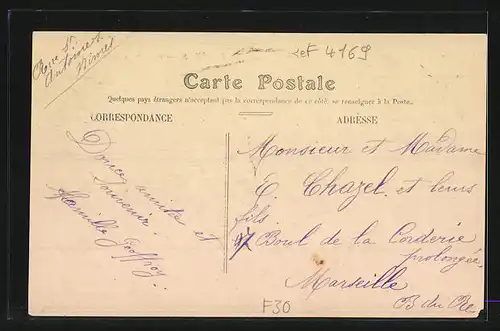 Rue St
Antoine
Nimes
ref 4169
Carte Postale
Quelques pays étrangers n'acceptant pas la correspondance de ce côté, se renseigner à la Poste.
CORRESPONDANCE
ADRESSE
Douce amitié et
Souvenir.
Famille Joffroy.
Monsieur et Madame
E. Chazel et leurs
fils.
97 Boul de la Corderie
prolongée
Marseille
B du Rh
F30